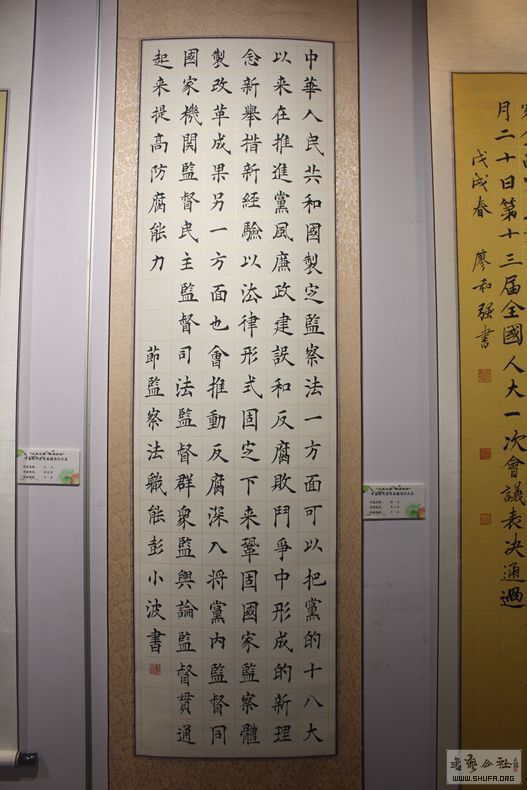 月二十日第十三届全國人大一次會議表决通過
戊戌春 廖和强書
中華人民共和國製定監察法一方面可以把黨的十八大
以来在推進黨風廉政建設和反腐敗鬥爭中形成的新理
念新舉措新經驗以法律形式固定下来鞏固國家監察體
製改革成果另一方面也會推動反腐深入將黨内監督同
國家機関監督民主監督司法監督群衆監輿論監督貫通
起来提高防腐能力 節監察法職能彭小波書
书艺公社
WWW.SHUFA.ORG